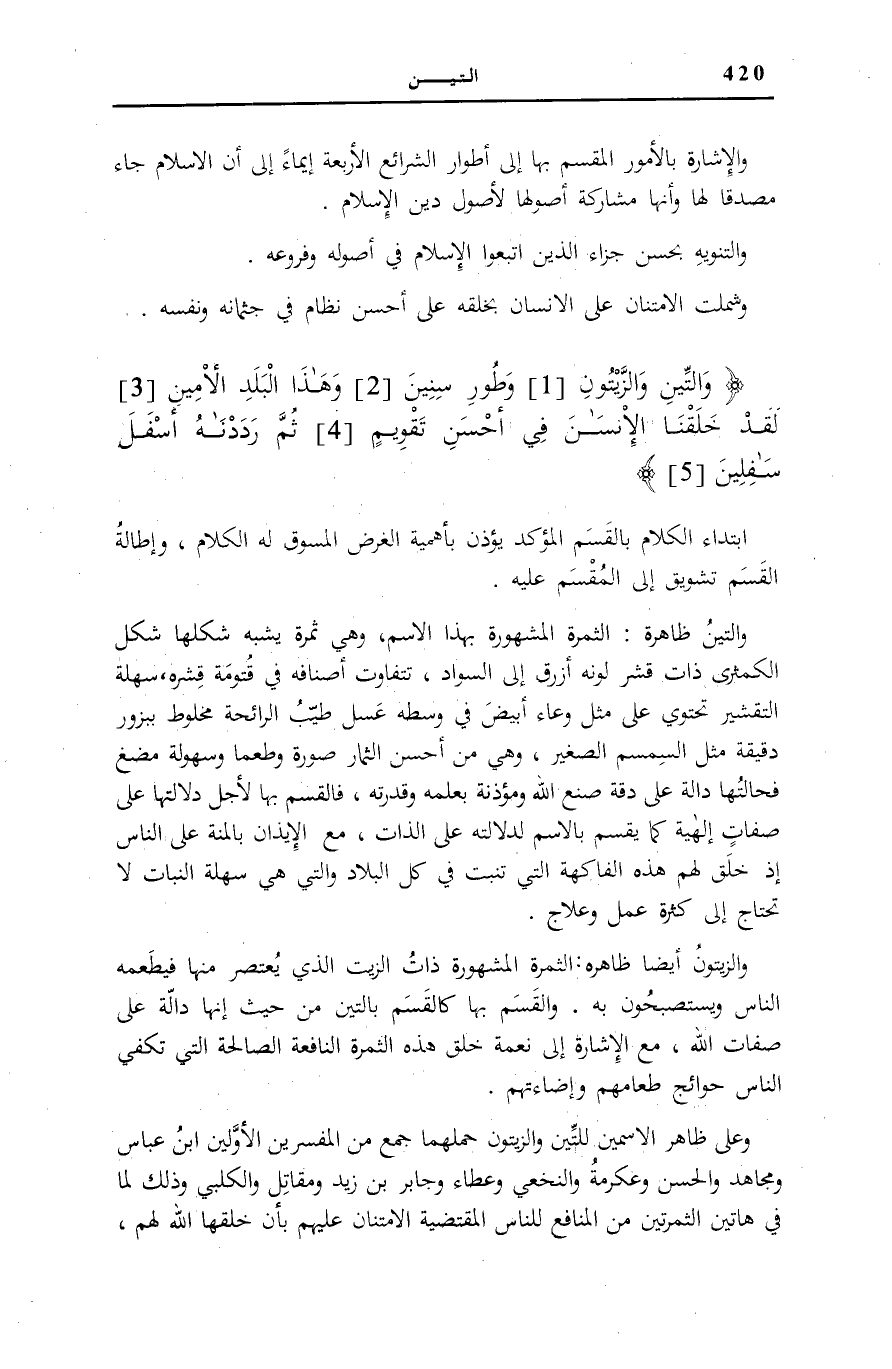 420
التيـــــن
والإشارة بالأمور المقسم بها إلى أطوار الشرائع الأربعة إيماءً إلى أن الاسلام جاء
مصدقا لها وأنها مشاركة أصولها لأصول دين الإسلام .
والتنويهِ بحسن جزاء الذين اتبعوا الإسلام في أصوله وفروعه .
وشملت الامتنان على الانسان بخلقه على أحسن نظام في جثمانه ونفسه .
﴿ وَالتِّينِ وَالزَّيْتُونِ [1] وَطُورِ سِنِينَ [2] وَهَـٰذَا الْبَلَدِ الْأَمِينِ [3]
لَقَـدْ خَلَقْنَـا الإِنْسَـٰـنَ فِي أَحْسَنِ تَقْوِيـمٍ [4] ثُمَّ رَدَدْنَـٰـهُ أَسْفَـلَ
سَـٰفِلِينَ [5] ﴾
ابتداء الكلام بالقَسَم المؤكد يؤذن بأهمية الغرض المسوق له الكلام ، وإطالةُ
القَسَم تشويق إلى المُقْسَم عليه .
والتينُ ظاهرة : الثمرة المشهورة بهذا الاسم، وهي ثمرة يشبه شكلها شكل
الكمثرى ذات قشر لونه أزرق إلى السواد ، تتفاوت أصنافه في قُتومَة قِشره، سهلة
التقشير تحتوي على مثل وعاء أبيضَ في وسطه عَسل طيّبُ الرائحة مخلوط ببزور
دقيقة مثل السمسم الصغير ، وهي من أحسن الثمار صورة وطعما وسهولة مضغ
فحالتُها دالة على دقة صنع الله ومؤذنة بعلمه وقدرته ، فالقسم بها لأجل دلالتها على
صفاتٍ إلٰهية كما يقسم بالاسم لدلالته على الذات ، مع الإيذان بالمنة على الناس
إذ خلَق لهم هذه الفاكهة التي تنبت في كل البلاد والتي هي سهلة النبات لا
تحتاج إلى كثرة عمل وعلاج .
والزيتونُ أيضا ظاهره: الثمرة المشهورة ذاتُ الزيت الذي يُعتصر منها فيطَعمه
الناس ويستصبحُون به . والقَسَم بها كالقَسَم بالتين من حيث إنها دالّة على
صفات الله ، مع الإشارة إلى نعمة خلق هذه الثمرة النافعة الصالحة التي تكفي
الناس حوائج طعامهم وإضاءتهم .
وعلى ظاهر الاسمين للتِّين والزيتون حملهما جمع من المفسرين الأوَّلين ابنُ عباس
ومجاهد والحسن وعكرمةُ والنخعي وعطاء وجابر بن زيد ومقاتِل والكلبي وذلك لما
في هاتين الثمرتين من المنافع للناس المقتضية الامتنان عليهم بأن خلقها الله لهم ،